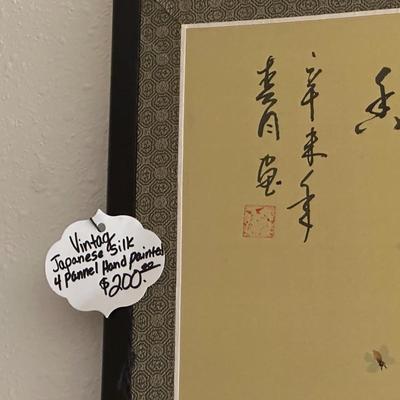 辛未年
青月画
Vintag
Japanese Silk
4 Pannel Hand painted
$200.00